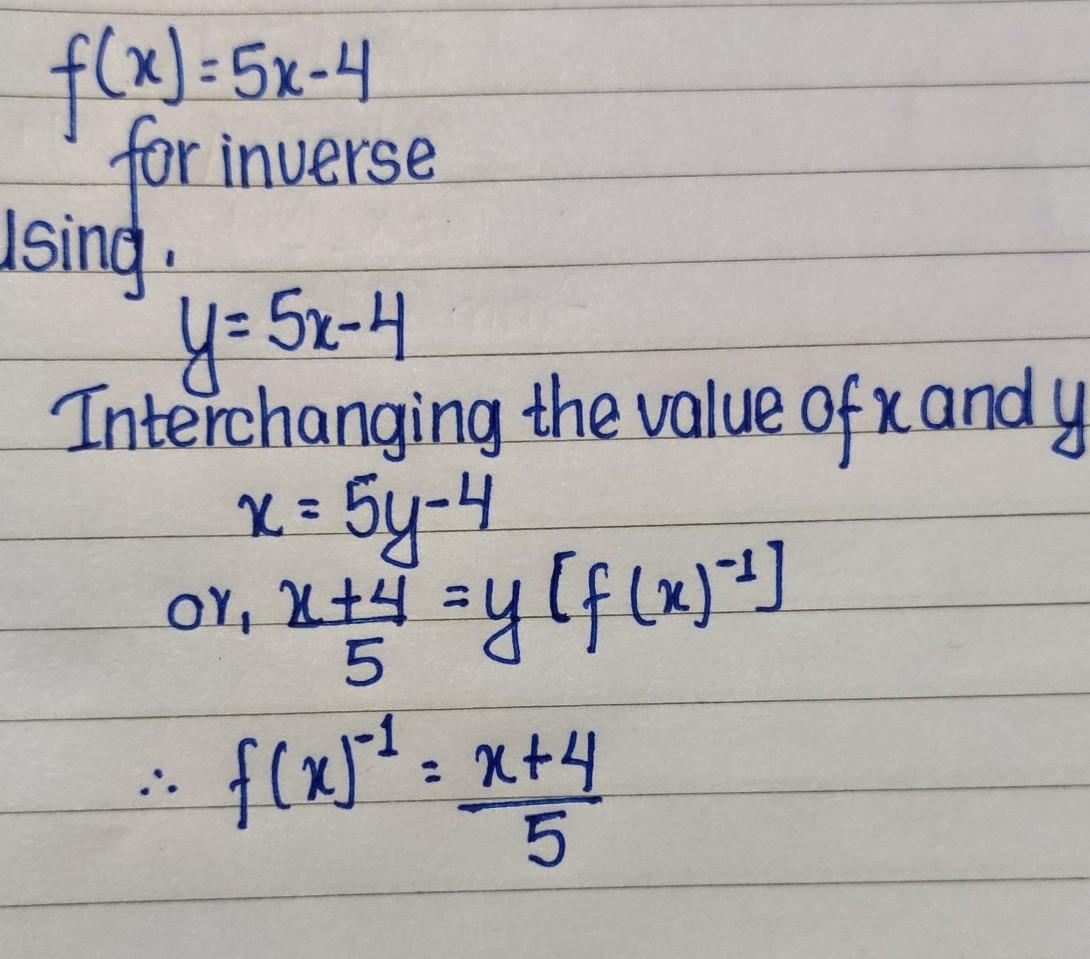 f(x)=5x-4
for inverse
Using.
y=5x-4
Interchanging the value of x and y
x=5y-4
or, x+4/5 =y [f(x)⁻¹]
∴ f(x)⁻¹ = x+4/5